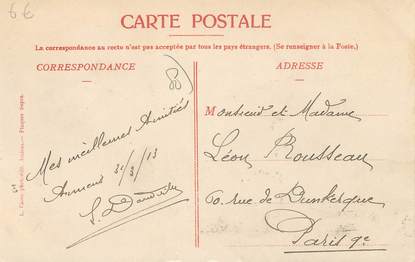 66
CARTE POSTALE
La correspondance au recto n'est pas acceptée par tous les pays étrangers. (Se renseigner à la Poste.)
CORRESPONDANCE
80
Mes meilleures Amitiés
Amiens 31/3/13
ADRESSE
Monsieur et Madame
Léon Rousseau
60 rue de Dunkerque
Paris 9e